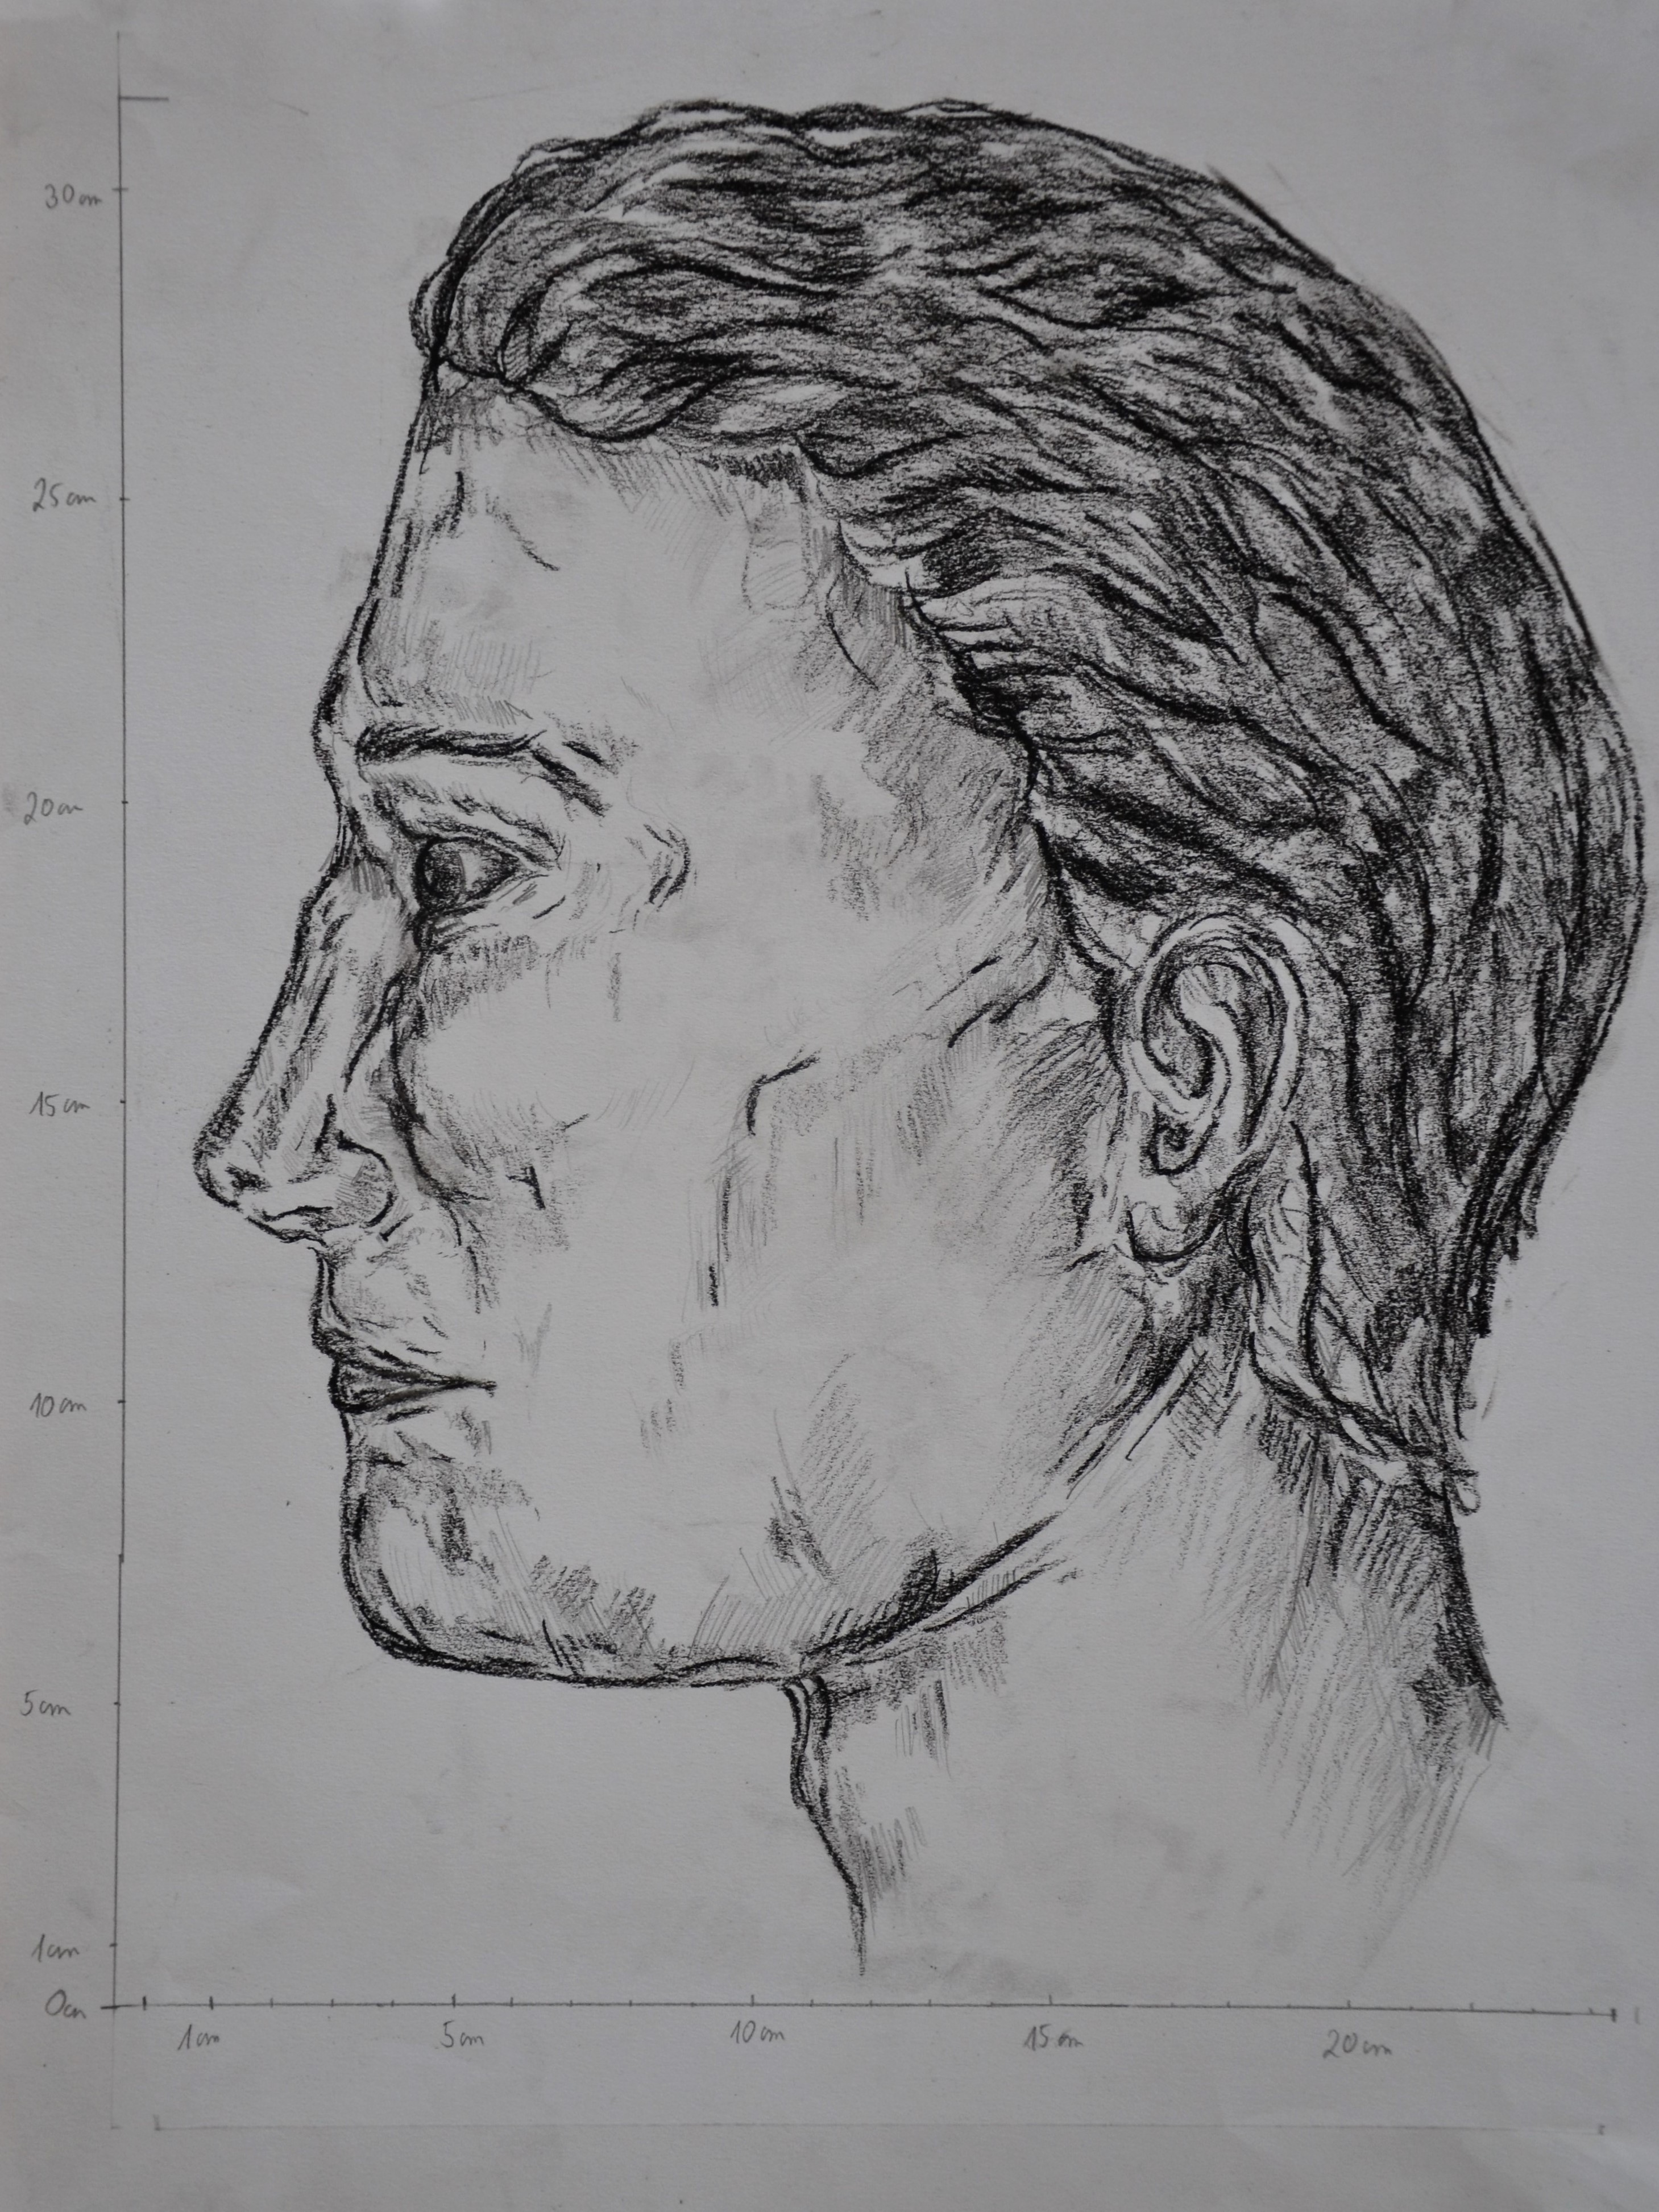 30cm
25cm
20cm
15cm
10cm
5cm
1cm
0cm
1cm 5cm 10cm 15cm 20cm